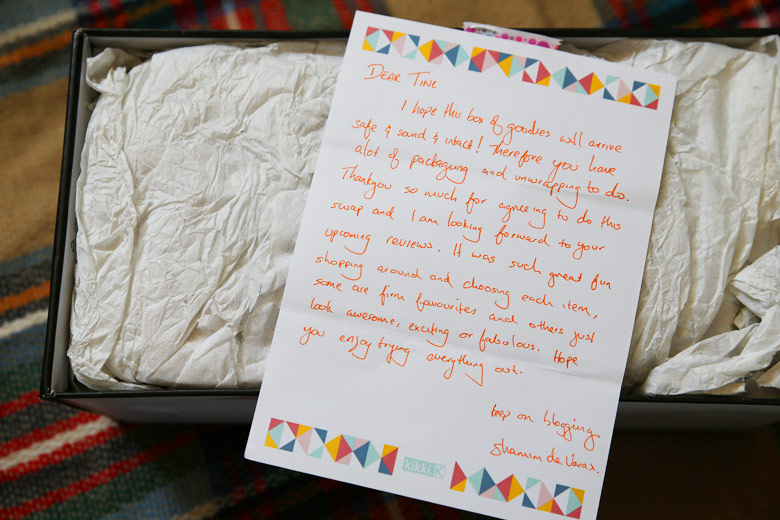 Dear Tine
I hope this box of goodies will arrive
safe & sound & intact! Therefore you have
alot of packaging and unwrapping to do.
Thankyou so much for agreeing to do this
swap and I am looking forward to your
upcoming reviews. It was such great fun
shopping around and choosing each item,
some are firm favourites and others just
look awesome, exciting or fabulous. Hope
you enjoy trying everything out.
keep on blogging
Shamim de
kikki.K